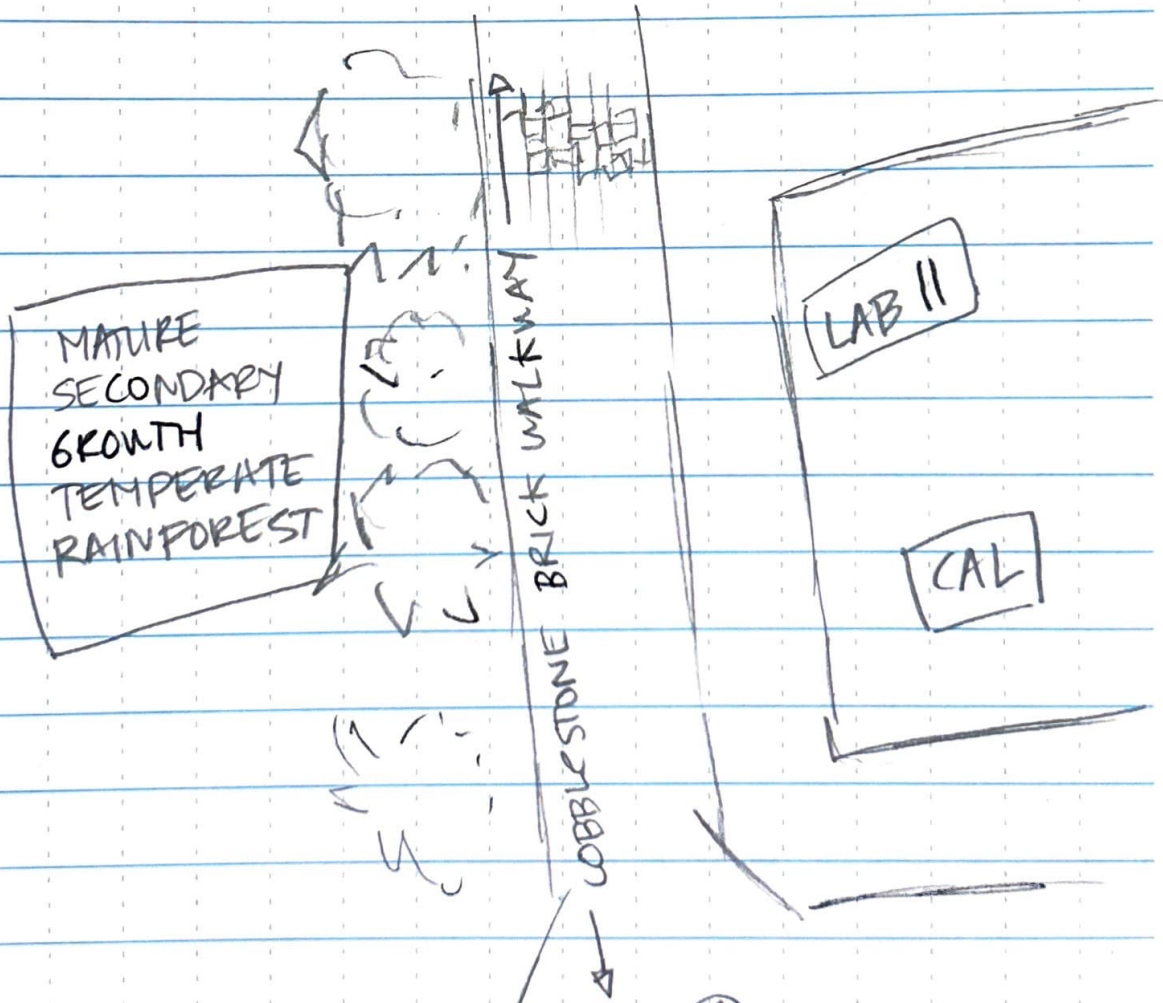 MATURE
SECONDARY
GROWTH
TEMPERATE
RAINFOREST
COBBLESTONE BRICK WALKWAY
LAB II
CAL